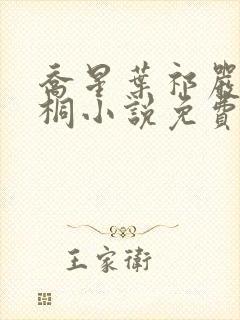 喬星葉祁嚴
桐小說免費
王家衛